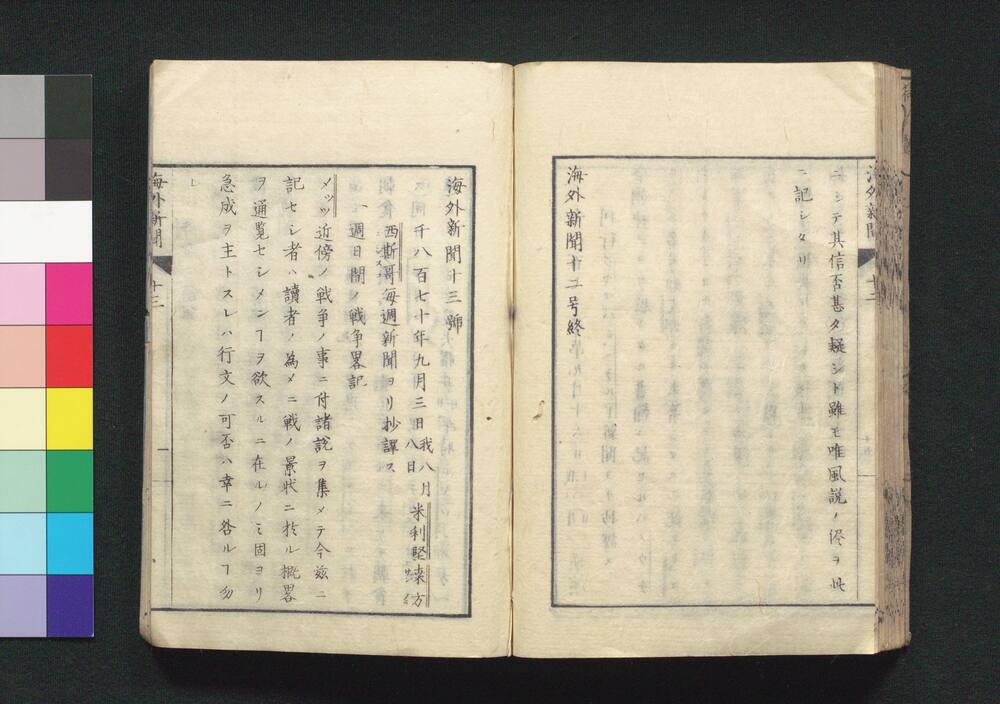 ニシテ其信否甚タ疑シト雖モ唯風説ノ侭ヲ此
ニ記シタリ
海外新聞十二号終
海外新聞
十二
海外新聞十三號
千八百七十年九月三日我八月八日米利堅
西斯哥毎週新聞ヨリ抄譯ス
一週日間ノ戦争畧記
メッツ近傍ノ戦争ノ事ニ付諸説ヲ集メテ今茲ニ
記セシ者ハ讀者ノ為メニ戦ノ景状ニ於ル概畧
ヲ通覧セシメンヿヲ欲スルニ在ルノミ固ヨリ
急成ヲ主トスレハ行文ノ可否ハ幸ニ咎ルヿ勿
レ
海外新聞
十三
一